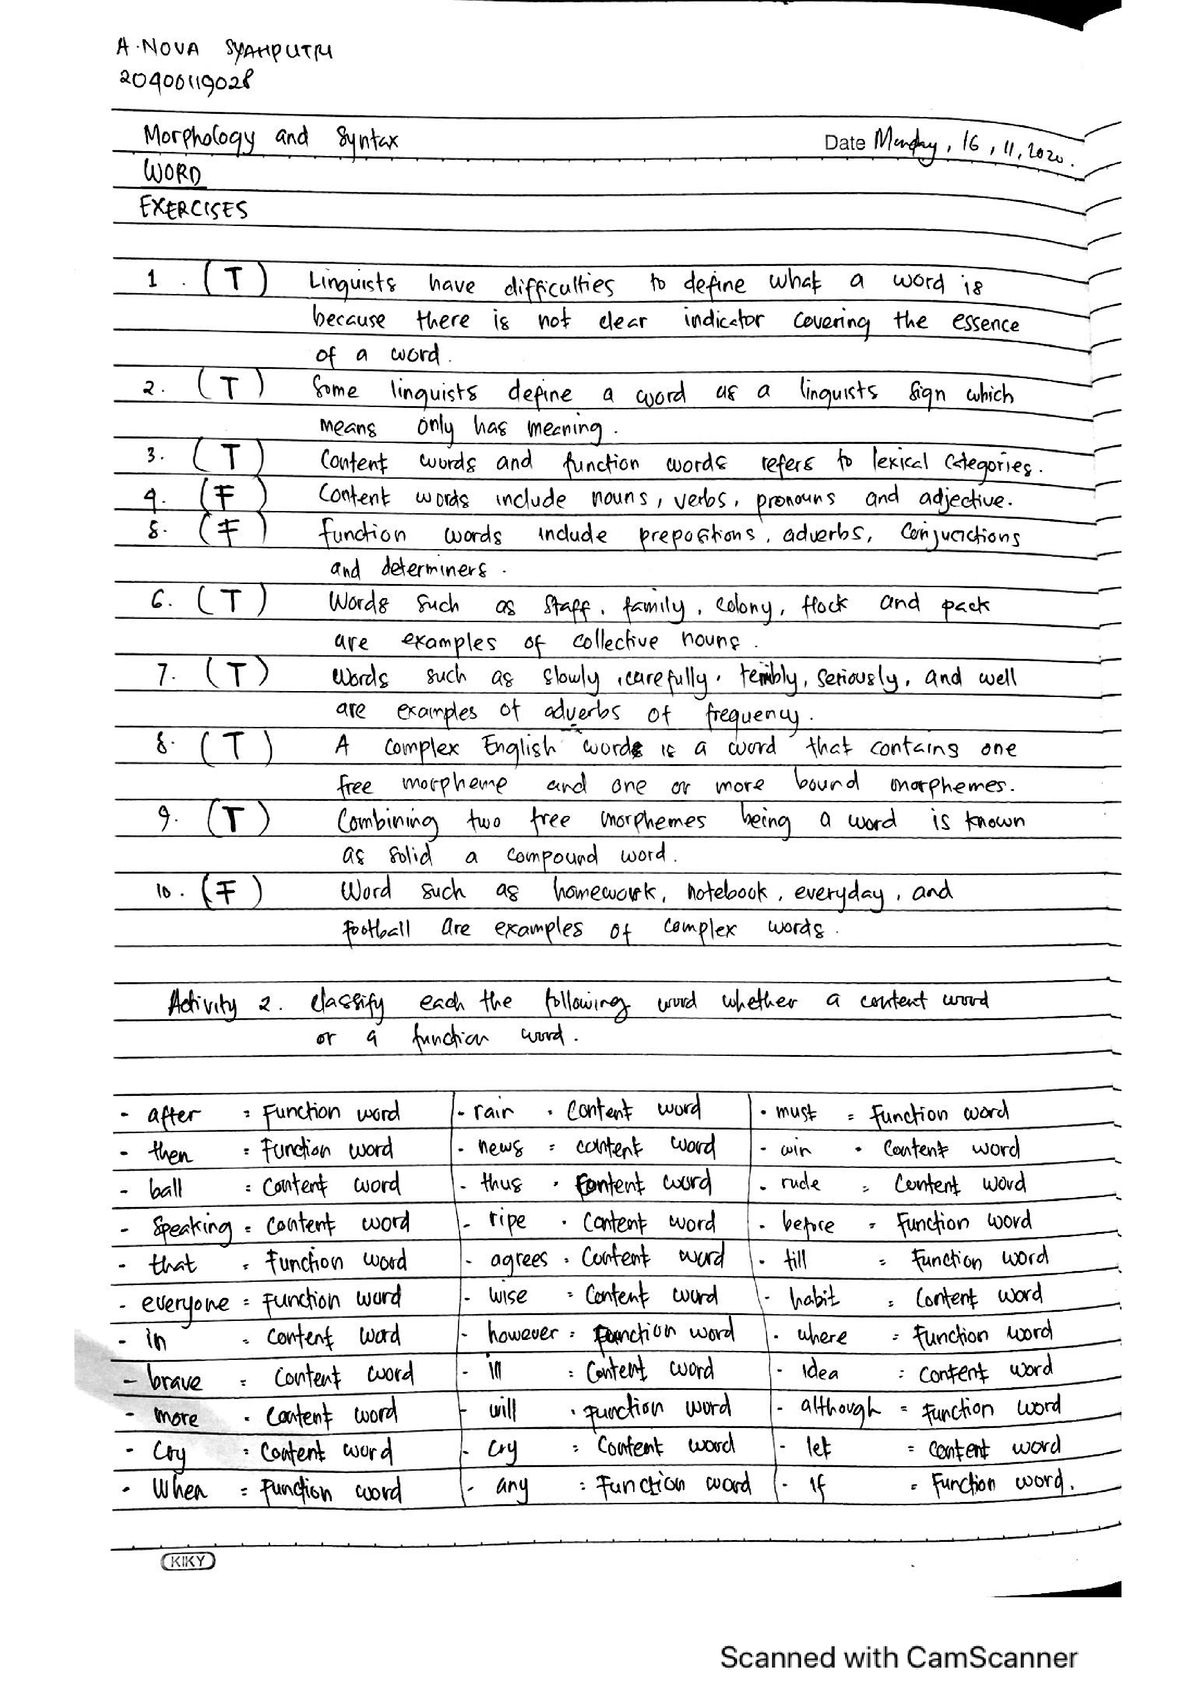 A. NOVA SYAHPUTRI
20400119028
Morphology and Syntax Date Monday, 16, 11, 2020.
WORD
EXERCISES
1. (T) Linguists have difficulties to define what a word is
because there is not clear indicator covering the essence
of a word.
2. (T) Some linguists define a word as a linguists sign which
means only has meaning.
3. (T) Content words and function words refers to lexical categories.
4. (F) Content words include nouns, verbs, pronouns and adjective.
5. (F) Function words include prepositions, adverbs, conjunctions
and determiners.
6. (T) Words such as staff, family, colony, flock and pack
are examples of collective nouns.
7. (T) Words such as slowly, carefully, terribly, seriously, and well
are examples of adverbs of frequency.
8. (T) A complex English words is a word that contains one
free morpheme and one or more bound morphemes.
9. (T) Combining two free morphemes being a word is known
as solid a compound word.
10. (F) Word such as homework, notebook, everyday, and
football are examples of complex words.
Activity 2. Classify each the following word whether a content word
or a function word.
- after = Function word - rain = Content word - must = Function word
- then = Function word - news = content word - win = Content word
- ball = Content word - thus = Content word - rude = Content word
- Speaking = Content word - ripe = Content word - before = Function word
- that = Function word - agrees = Content word - till = Function word
- everyone = Function word - wise = Content word - habit = Content word
- in = Content word - however = Function word - where = Function word
- brave = Content word - in = Content word - idea = Content word
- more = Content word - will = Function word - although = Function word
- Cry = Content word - cry = Content word - let = Content word
- When = Function word - any = Function word - if = Function word.
KIKY
Scanned with CamScanner